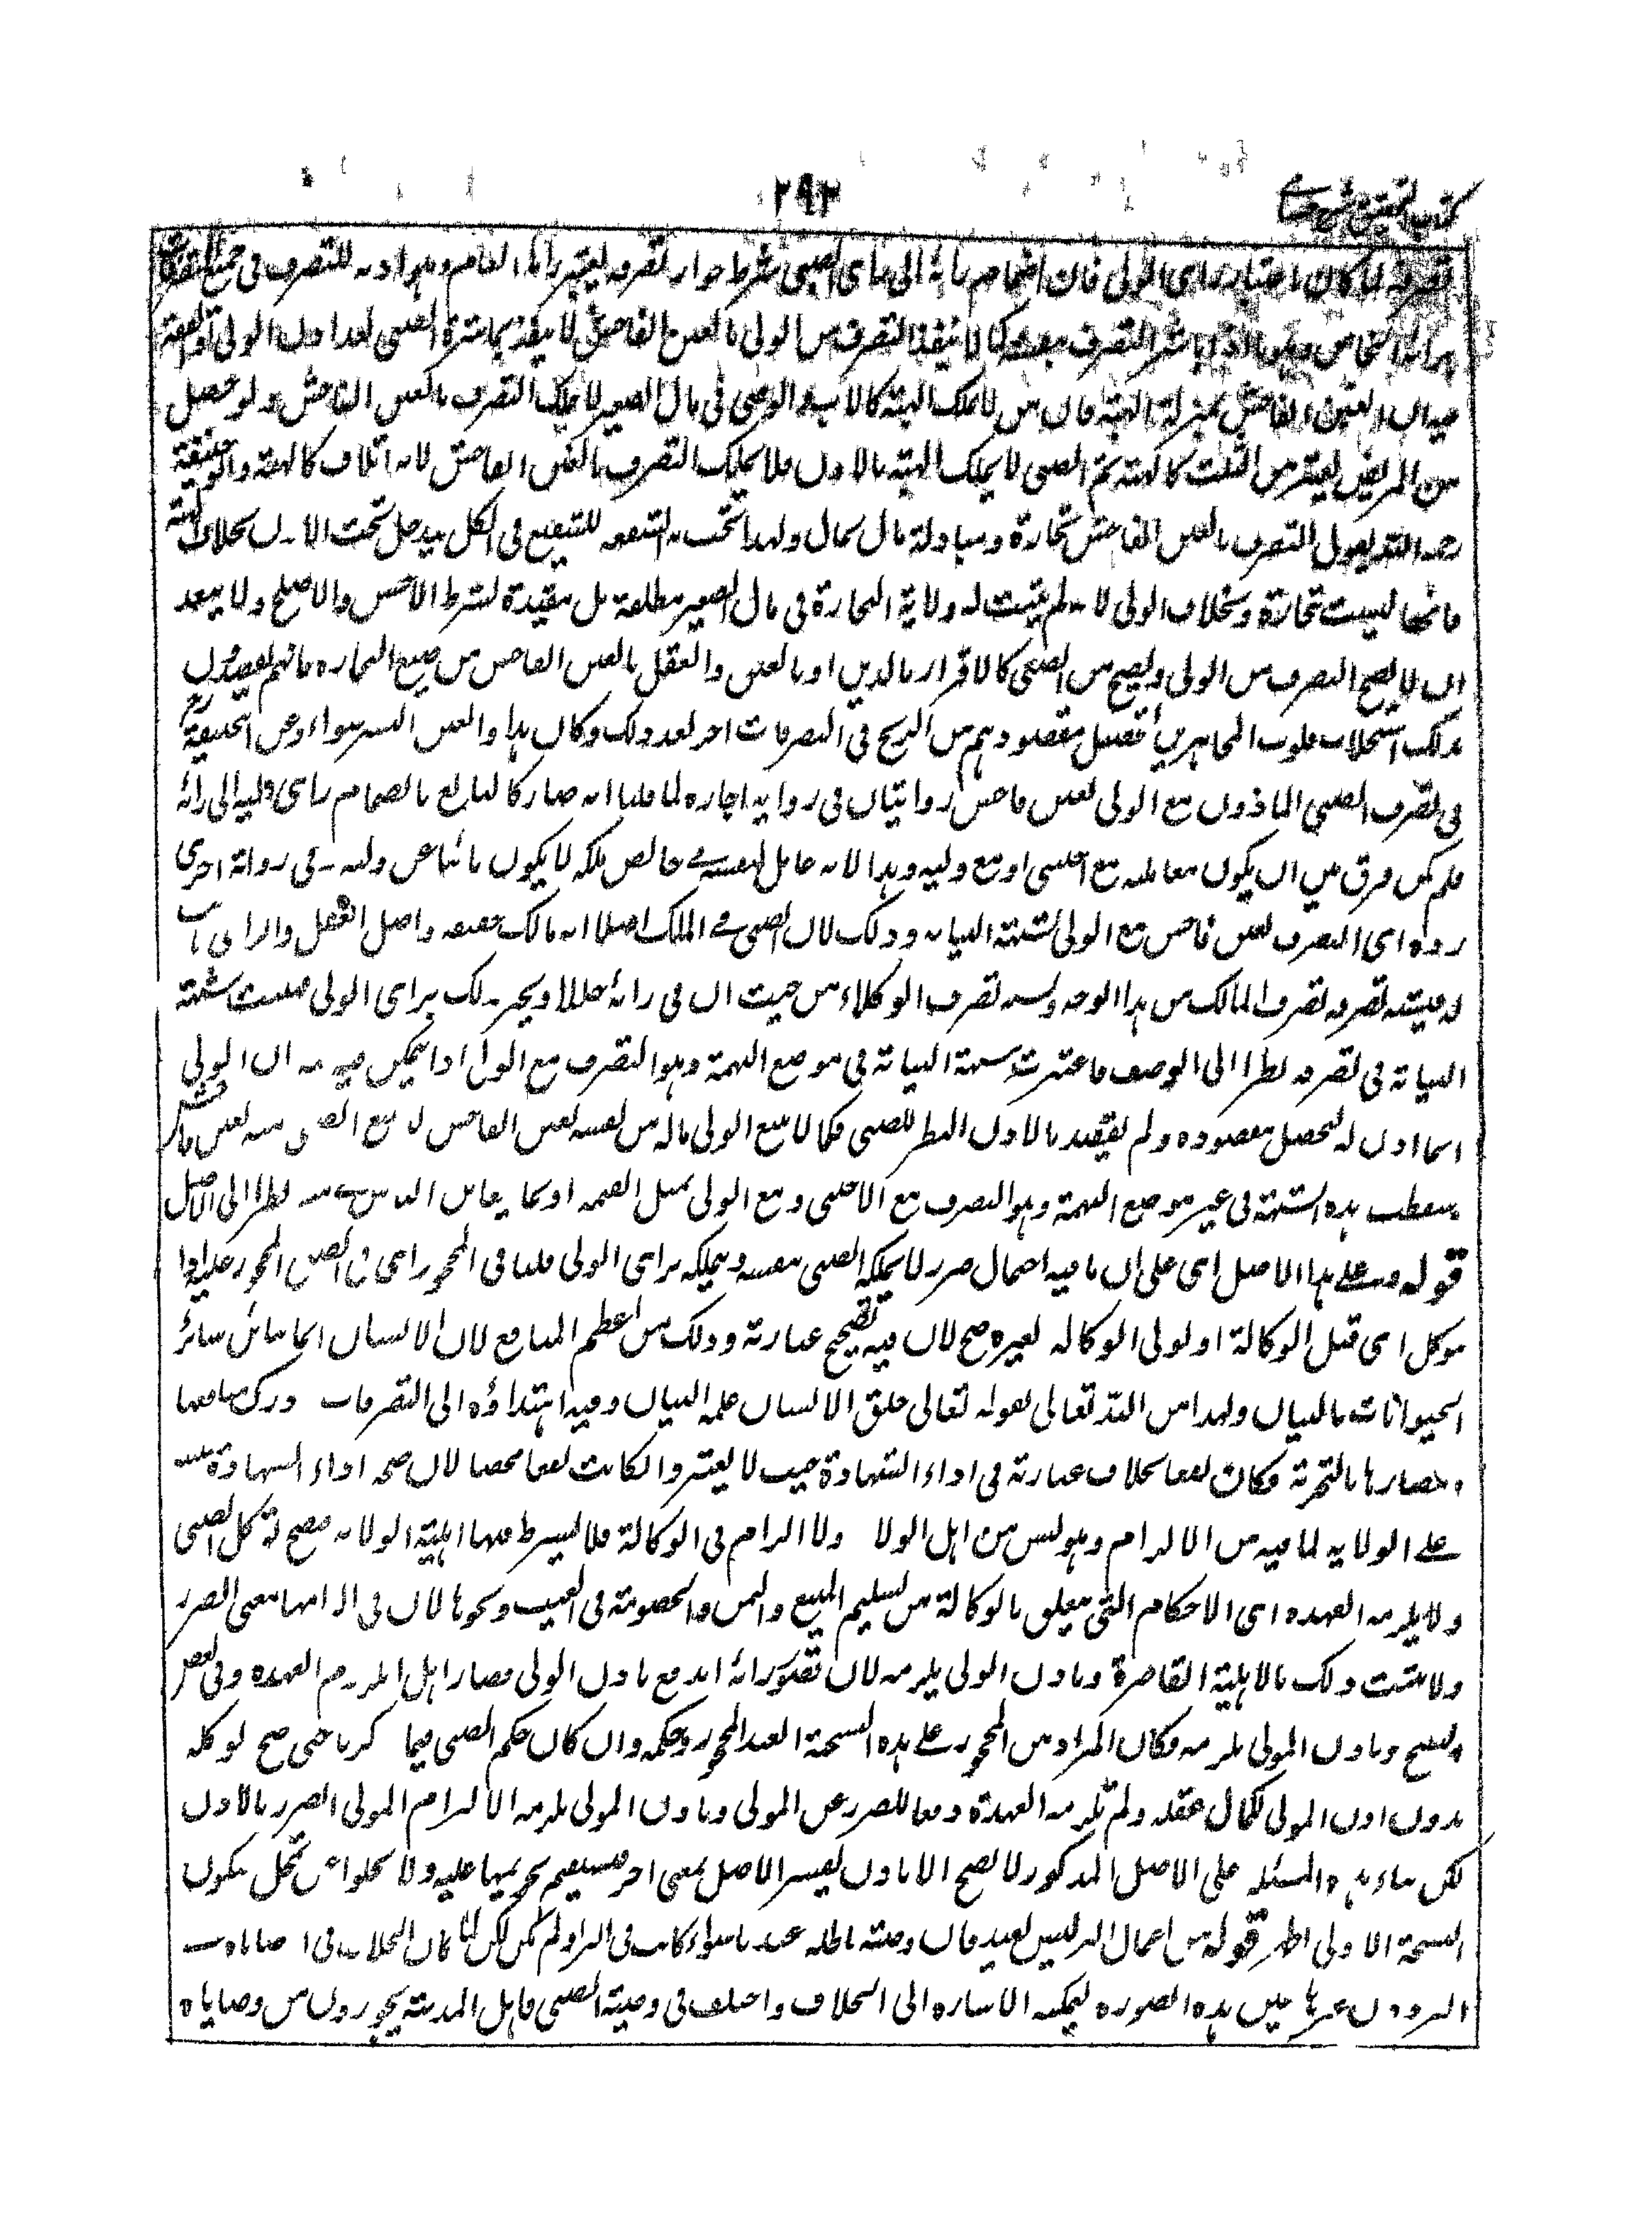 ٢٩٢
تصرفه لما كان باعتبار راى الولى فان انضمام رايه الى راى الصبى شرط جواز تصرفه يعتبر رايه العام وهو اذنه للتصرف فى جميع التصرفات
برايه الخاص وهو ما اذا باشر التصرف بنفسه كما لا ينفذ التصرف من الولى بالغبن الفاحش لا ينفذ بمباشرة الصبى بعد اذن الولى
الغبن الفاحش بمنزلة الهبة فان من لا يملك الهبة كالاب والوصى فى مال الصغير لا يملك التصرف بالغبن الفاحش ولو حصل
من المريض يعتبر من الثلث كالهبة ثم الصبى لا يملك الهبة بالاذن فلا يملك التصرف بالغبن الفاحش لانه اتلاف كالهبة وابو حنيفة
رحمه الله يقول التصرف بالغبن الفاحش تجارة ومبادلة مال بمال ولهذا تجب به الشفعة للشفيع فى الكل فيدخل تحت الاذن بخلاف الهبة
فانها ليست تجارة وبخلاف الولى لانه لم يثبت له ولاية التجارة فى مال الصغير مطلقة بل مقيدة بشرط الاحسن والاصلح ولا يبعد
ان لا يصح التصرف من الولى ويصح من الصبى كالاقرار بالدين او بالعين والعقد بالغبن الفاحش من صنيع التجارة فانهم يقصدون
بذلك استجلاب قلوب المجاهزين لتحصيل مقصودهم من الربح فى التصرفات اخر بعد ذلك وكان هذا والغبن اليسير سواء وعن ابى حنيفة رح
فى تصرف الصبى الماذون مع الولى بغبن فاحش روايتان فى رواية اجازه لما قلنا انه صار كالبالغ بانضمام راى وليه الى رايه
فلم يكن فرق بين ان يكون معاملته مع اجنبى او مع وليه وهذا لانه عامل لنفسه فى خالص ملكه لا يكون نائبا عن وليه وفى رواية اخرى
رده اى التصرف بغبن فاحش مع الولى لشبهة النيابة وذلك لان الصبى فى الملك اصلا انه مالك حقيقة واصل العقل والراى ثابت
له فيشبه تصرفه تصرف الملاك من هذا الوجه ويشبه تصرف الوكلاء من حيث ان فى رايه خللا ويجبر ذلك براى الولى فيثبت شبهة
النيابة فى تصرفه نظرا الى الوصف فاعتبرت شبهة النيابة فى موضع التهمة وهو التصرف مع الولى اذا يتمكن فيه تهمة ان الولى
انما اذن له ليحصل مقصوده ولم يقصد بالاذن النظر للصبى فكما لا يبيع الولى ماله من نفسه بغبن الفاحش لا يبيع الصبى منه بغبن فاحش
وسقطت هذه الشبهة فى غير موضع التهمة وهو التصرف مع الاجنبى ومع الولى بمثل القيمة او بما يتغابن الناس فيه نظرا الى الاصل
قوله وعلى هذا الاصل اى على ان ما فيه احتمال ضرر لا يملكه الصبى بنفسه ويملكه براى الولى قلنا فى المحجور اى فى الصبى المحجور عليه اذا
توكل اى قبل الوكالة او تولى الوكالة لغيره صح لان فيه تصحيح عبارته وذلك من اعظم المنافع لان الانسان انما باين سائر
الحيوانات بالبيان ولهذا من الله تعالى بقوله تعالى خلق الانسان علمه البيان وفيه اهتداؤه الى التصرفات ودرك منافعها
ومضارها بالتجربة فكان نفعا بخلاف عبارته فى اداء الشهادة حيث لا يعتبر وان كانت نفعا محضا لان صحة اداء الشهادة مبنية
على الولاية لما فيه من الالزام وهو ليس من اهل الولاية ولا الزام فى الوكالة فلا يشترط فيها اهلية الولاية فصح توكل الصبى
ولا يلزمه العهدة اى الاحكام التى يتعلق بالوكالة من تسليم المبيع والثمن والخصومة فى العيب ونحوها لان فى الزامها معنى الضرر
ولا يثبت ذلك بالاهلية القاصرة وباذن الولى يلزمه لان قصور رايه اندفع باذن الولى فصار اهلا للزوم العهدة وفى بعض
النسخ وباذن المولى يلزمه فكان المراد من المحجور على هذه النسخة العبد المحجور وحكمه وان كان حكم الصبى فيما ذكرنا حتى صح توكله
بدون اذن المولى لكمال عقله ولم تلزمه العهدة دفعا للضرر عن المولى وباذن المولى يلزمه لالتزام المولى الضرر بالاذن
لكن بناء هذه المسئلة على الاصل المذكور لا يصح الا باذن يفسر الاصل بمعنى اخر فيستقيم تخريجها عليه ولا يخلوا عن تمحل فيكون
النسخة الاولى اظهر قوله من اعمال البر ليس بقيد فان وصيته باطلة عندنا سواء كانت فى البر او لم يكن لكن لما كان الخلاف فى
البر دون غيرها عين هذه الصورة ليمكنه الاشارة الى الخلاف واختلف فى وصية الصبى فاهل المدينة يجوزون من وصاياه